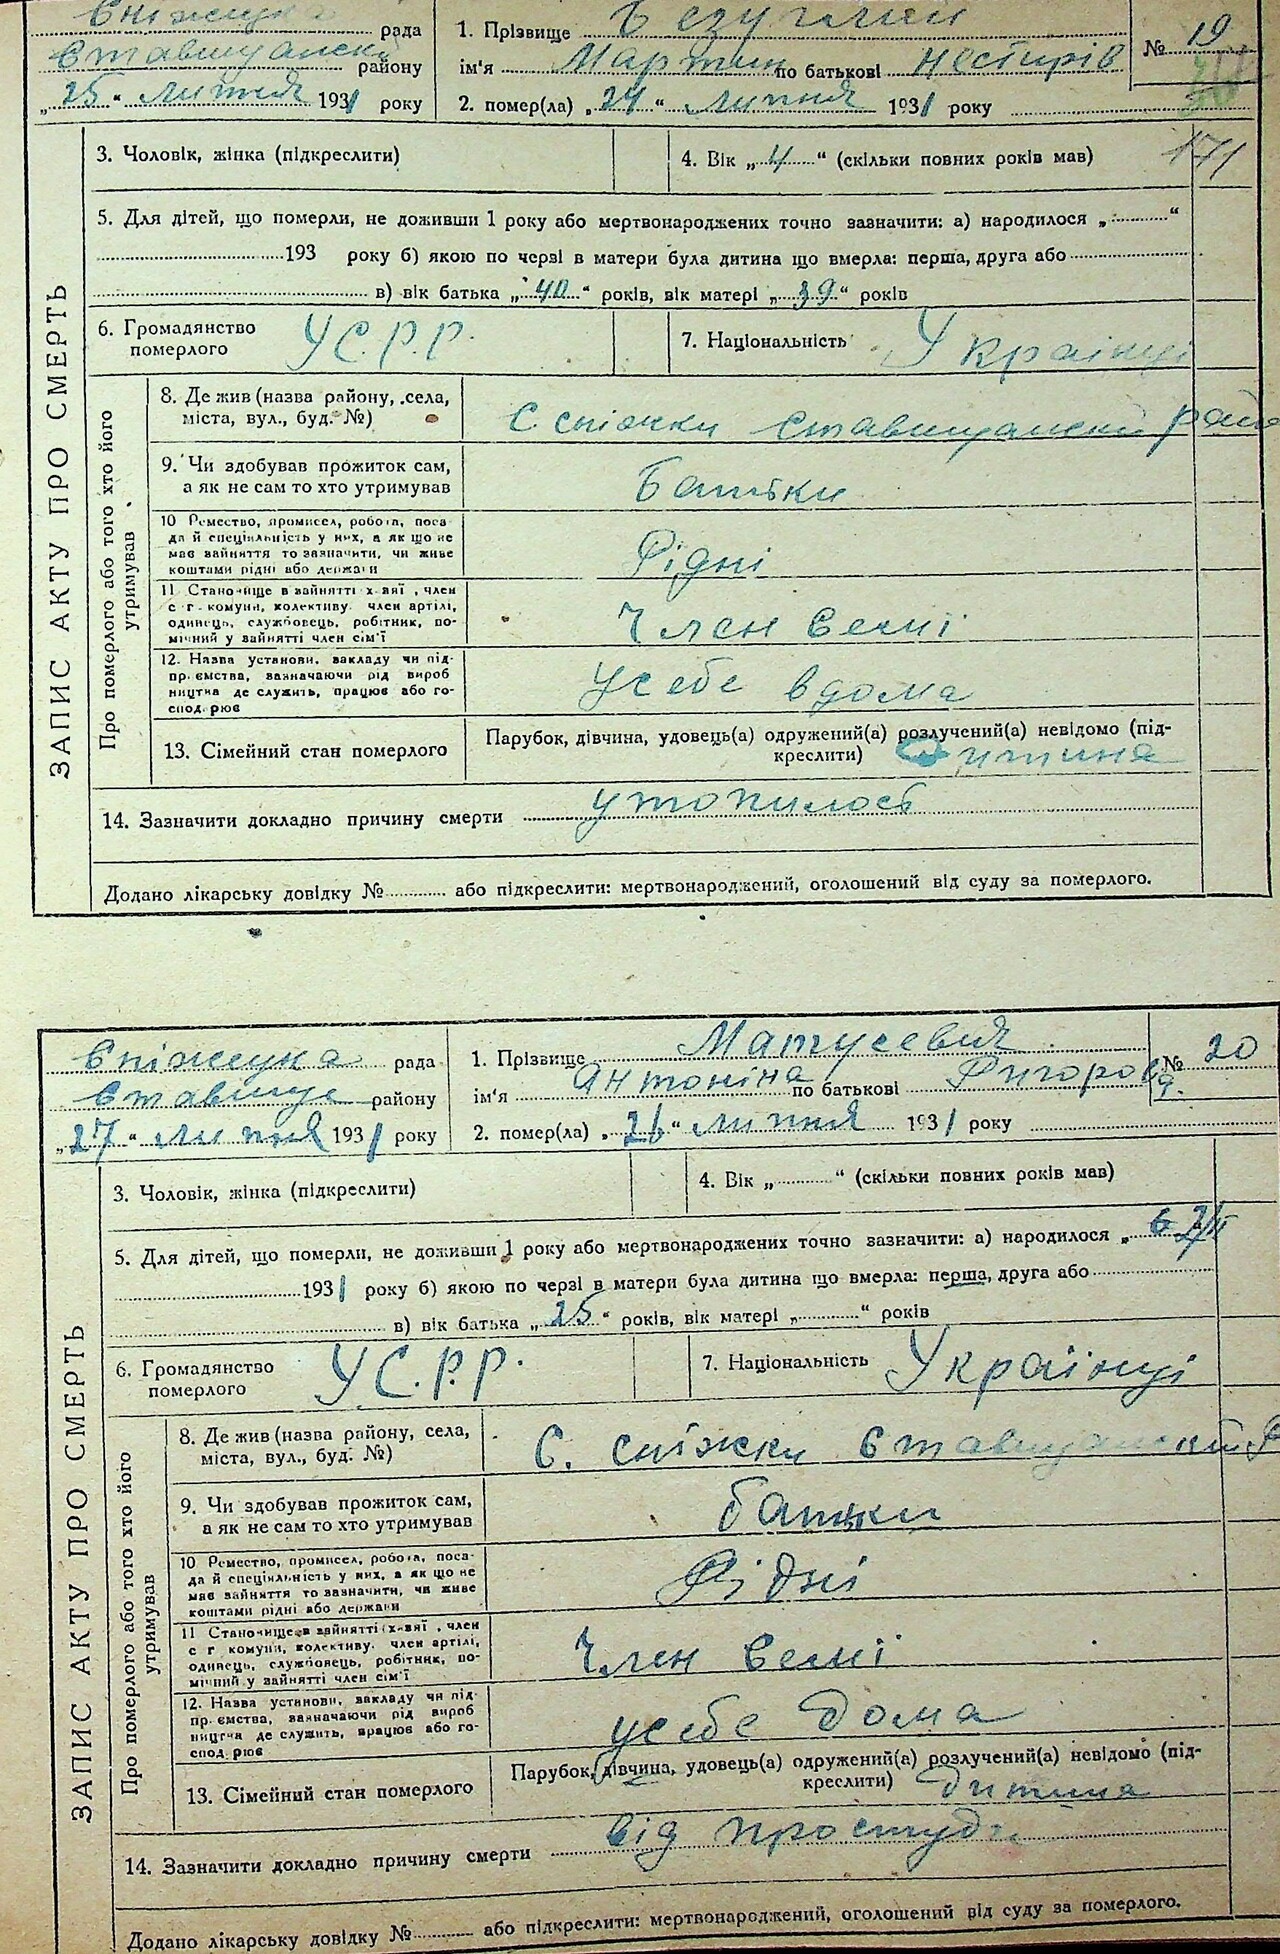 рада
району
„25“ Липня 1931 року
1. Прізвище Безуглий
ім'я Мартин по батькові Нестирів
2. помер(ла) „24“ липня 1931 року
№ 19
171
3. Чоловік, жінка (підкреслити)
4. Вік „4“ (скільки повних років мав)
5. Для дітей, що померли, не доживши 1 року або мертвонароджених точно зазначити: а) народилося „ “
193 року б) якою по черзі в матери була дитина що вмерла: перша, друга або
в) вік батька „40“ років, вік матері „39“ років
ЗАПИС АКТУ ПРО СМЕРТЬ
6. Громадянство померлого У.С.Р.Р.
7. Національність Українці
Про померлого або того хто його утримував
8. Де жив (назва району, села,
міста, вул., буд. №)
9. Чи здобував прожиток сам,
а як не сам то хто утримував
Батьки
10 Ремество, промисел, робота, поса-
да й спеціяльність у них, а як що не
має зайняття то зазначити, чи живе
коштами рідні або держави
Рідні
11 Становище в зайнятті х-вяї, член
с г. комуни, колективу. член артілі,
одинець, службовець, робітник, по-
мічний у зайнятті член сім'ї
Член семї
12. Назва установи, закладу чи під-
пр ємства, зазначаючи рід вироб
ництва де служить, працює або го-
спод. рює
усебе вдома
13. Сімейний стан померлого
Парубок, дівчина, удовець(а) одружений(а) розлучений(а) невідомо (під-
креслити) Дитина
14. Зазначити докладно причину смерти утопилось
Додано лікарську довідку № або підкреслити: мертвонароджений, оголошений від суду за померлого.
рада
Ставище району
„27“ Липня 1931 року
1. Прізвище Матусевич
ім'я Антоніна по батькові Григорова
2. помер(ла) „26“ липня 1931 року
№ 20
3. Чоловік, жінка (підкреслити)
4. Вік „ “ (скільки повних років мав)
5. Для дітей, що померли, не доживши 1 року або мертвонароджених точно зазначити: а) народилося „
1931 року б) якою по черзі в матери була дитина що вмерла: перша, друга або
в) вік батька „25“ років, вік матері „ “ років
ЗАПИС АКТУ ПРО СМЕРТЬ
6. Громадянство померлого У.С.Р.Р.
7. Національність Українці
Про померлого або того хто його утримував
8. Де жив (назва району, села,
міста, вул., буд. №)
с. сніжки Ставищанский Р
9. Чи здобував прожиток сам,
а як не сам то хто утримував
батьки
10 Ремество, промисел, робота, поса-
да й спеціяльність у них, а як що не
має зайняття то зазначити, чи живе
коштами рідні або держави
Рідні
11 Становище в зайнятті х-вяї, член
с г комуни, колективу. член артілі,
одинець, службовець, робітник, по-
мічний у зайнятті член сім'ї
Член семї
12. Назва установи, закладу чи під-
пр ємства, зазначаючи рід вироб
ництва де служить, працює або го-
спод. рює
усебе дома
13. Сімейний стан померлого
Парубок, дівчина, удовець(а) одружений(а) розлучений(а) невідомо (під-
креслити) Дитина
14. Зазначити докладно причину смерти від простуди
Додано лікарську довідку № або підкреслити: мертвонароджений, оголошений від суду за померлого.